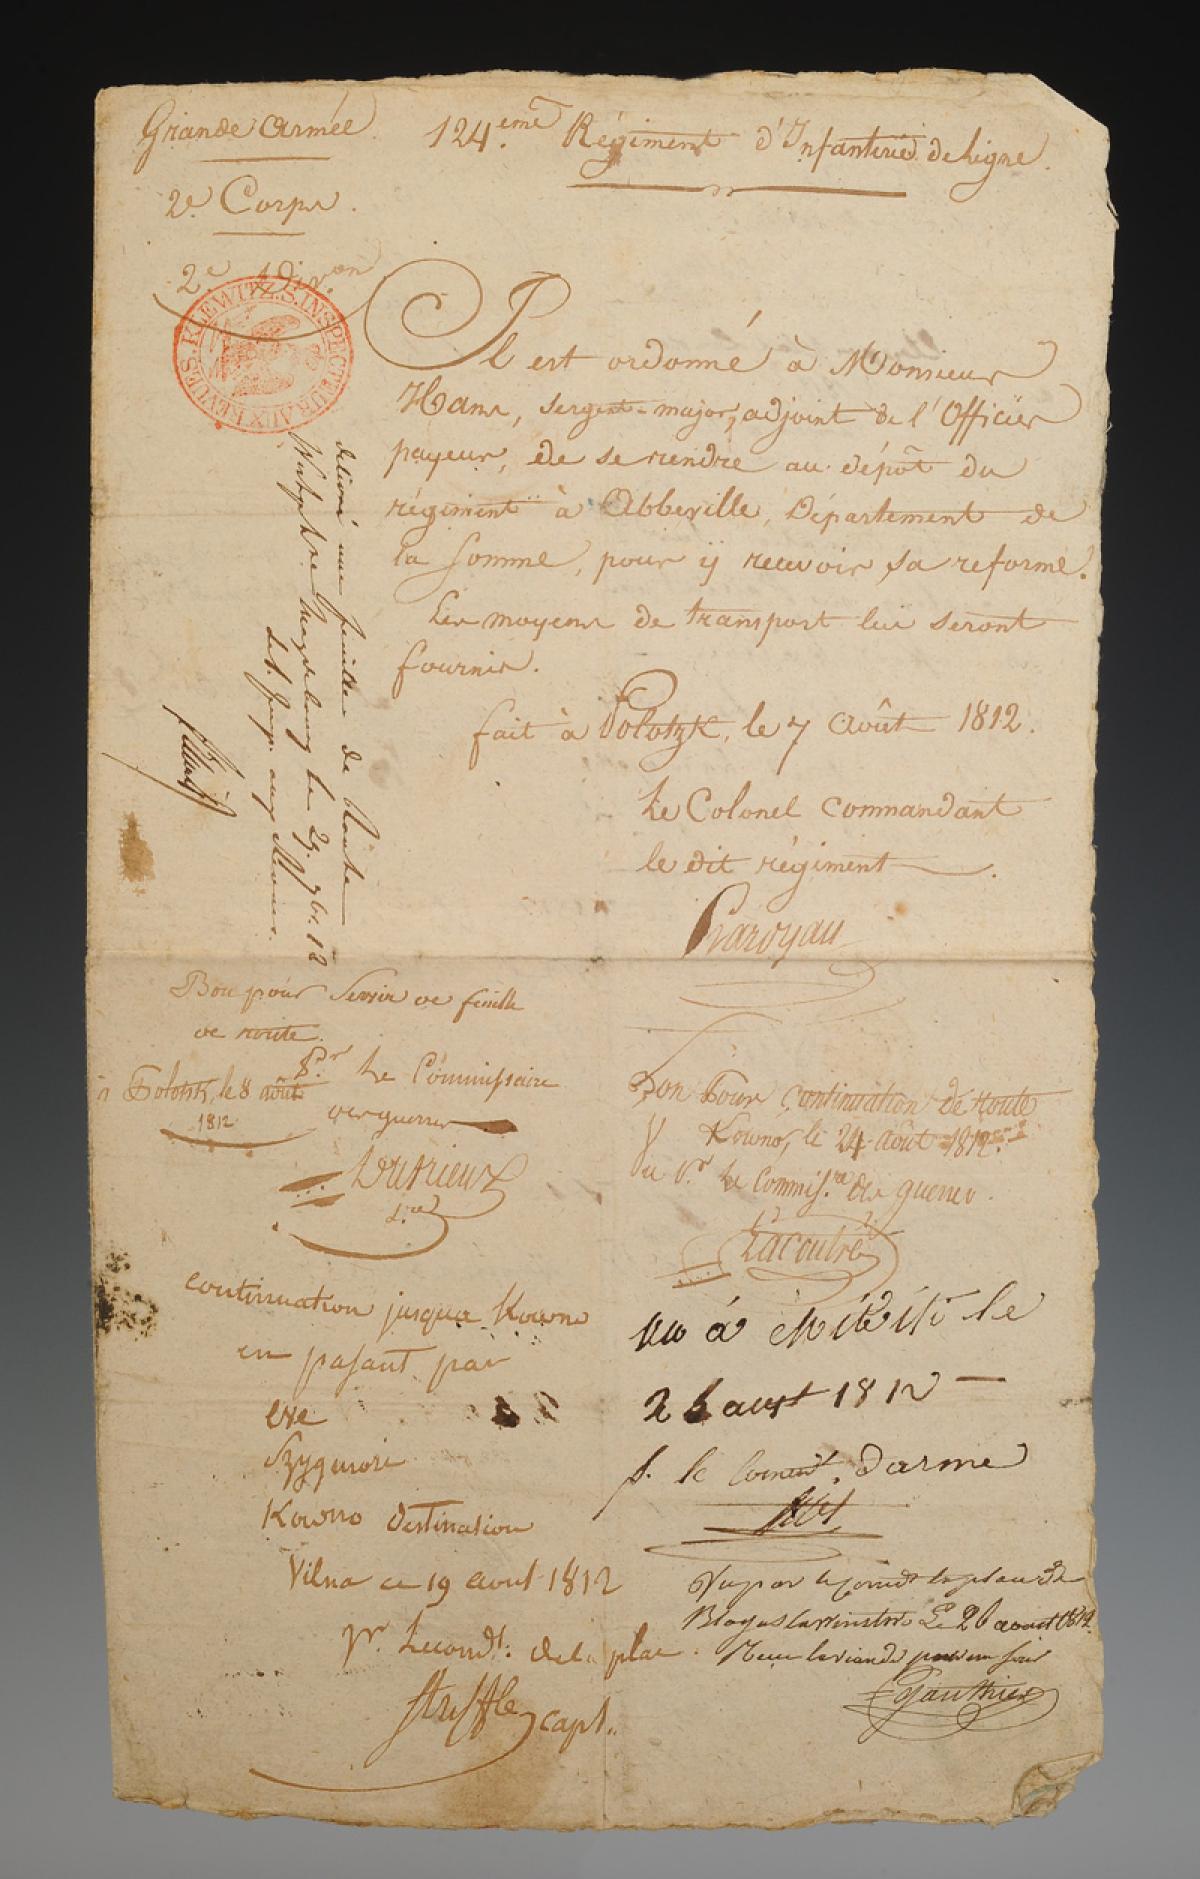 Grande Armée.
124.eme Régiment d'Infanterie de Ligne.
2e. Corps.
2.e Div.on
KLEWITZ. S. INSPECTEUR AUX REVUES.
Il est ordonné à Monsieur
Hans, sergent-major, adjoint de l'Officier
payeur, de se rendre au dépôt du
régiment à Abbeville, Département de
la Somme, pour ÿ recevoir sa reforme.
Les moyens de transport lui seront
fournis.
fait à Polotzk, le 7 Août 1812.
Le Colonel commandant
le dit régiment.
délivré une feuille de Route
Magdebourg le 29. 7br. 12
Le S. Insp. aux Revues.
Bon pour Servir de feuille
de route.
à Polotzk, le 8 août
1812
P.r Le Commissaire
des guerres
Dutrieux
Bon Pour Continuation de route
Kowno, le 24 août 1812.
P.r Le Commiss.re des guerres.
Lacoutré
continuation jusqua Kowno
en passant par
eve
Szygmori
Kowno Destination
Vilna ce 19 aout 1812
pr. Le comdt. de la place
capt..
vu á le
26 aust 1812
p. le Comend. Darme
Vu par le Comdt la place de
Le 26 aoust 1812.
pour un jour
Gauthier